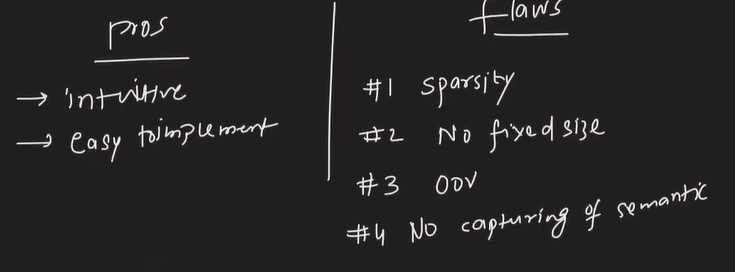 pros
→ intuitive
→ easy to implement
flaws
#1 sparsity
#2 No fixed size
#3 OOV
#4 No capturing of semantic